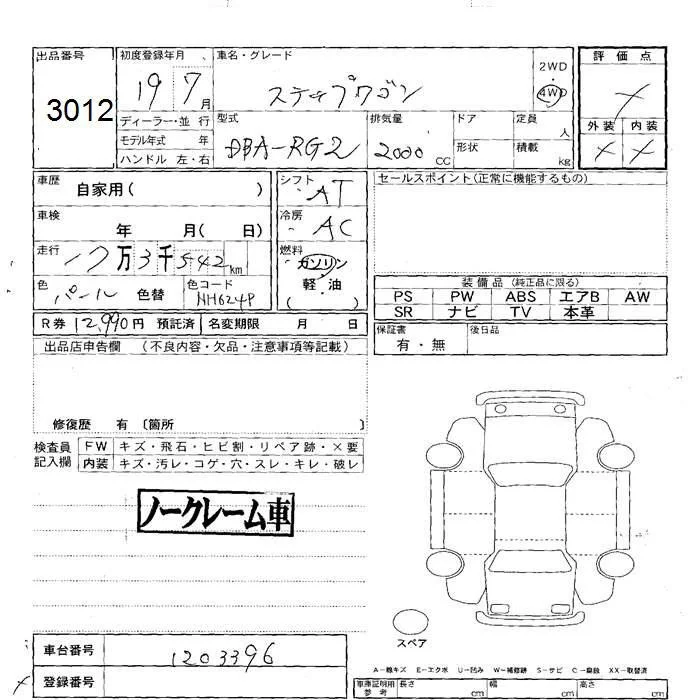 出品番号 3012
初度登録年月 19 7月
ディーラー・並 行
モデル年式 年
ハンドル 左・右
車名・グレード ステップワゴン
2WD
4WD
型式 DBA-RG2
排気量 2000 CC
ドア
形状
定員 人
積載 kg
評価点
外装 内装
車歴 自家用( )
車検 年 月( 日)
走行 17万3千542km
色 パール 色替
色コード NH624P
シフト AT
冷房 AC
燃料 ガソリン
軽・油
( )
R券 12,990円 預託済 名変期限 月 日
セールスポイント(正常に機能するもの)
装備品 (純正品に限る)
PS PW ABS エアB AW
SR ナビ TV 本革
保証書 有・無
後日品
出品店申告欄 (不良内容・欠品・注意事項等記載)
修復歴 有 〔箇所 〕
検査員
記入欄
FW キズ・飛石・ヒビ割・リペア跡・×要
内装 キズ・汚レ・コゲ・穴・スレ・キレ・破レ
ノークレーム車
スペア
車台番号 1203396
登録番号
A-線キズ E-エクボ U-凹ミ W-補修跡 S-サビ C-腐蝕 XX-取替済
車庫証明用
参考
長さ cm 幅 cm 高さ cm